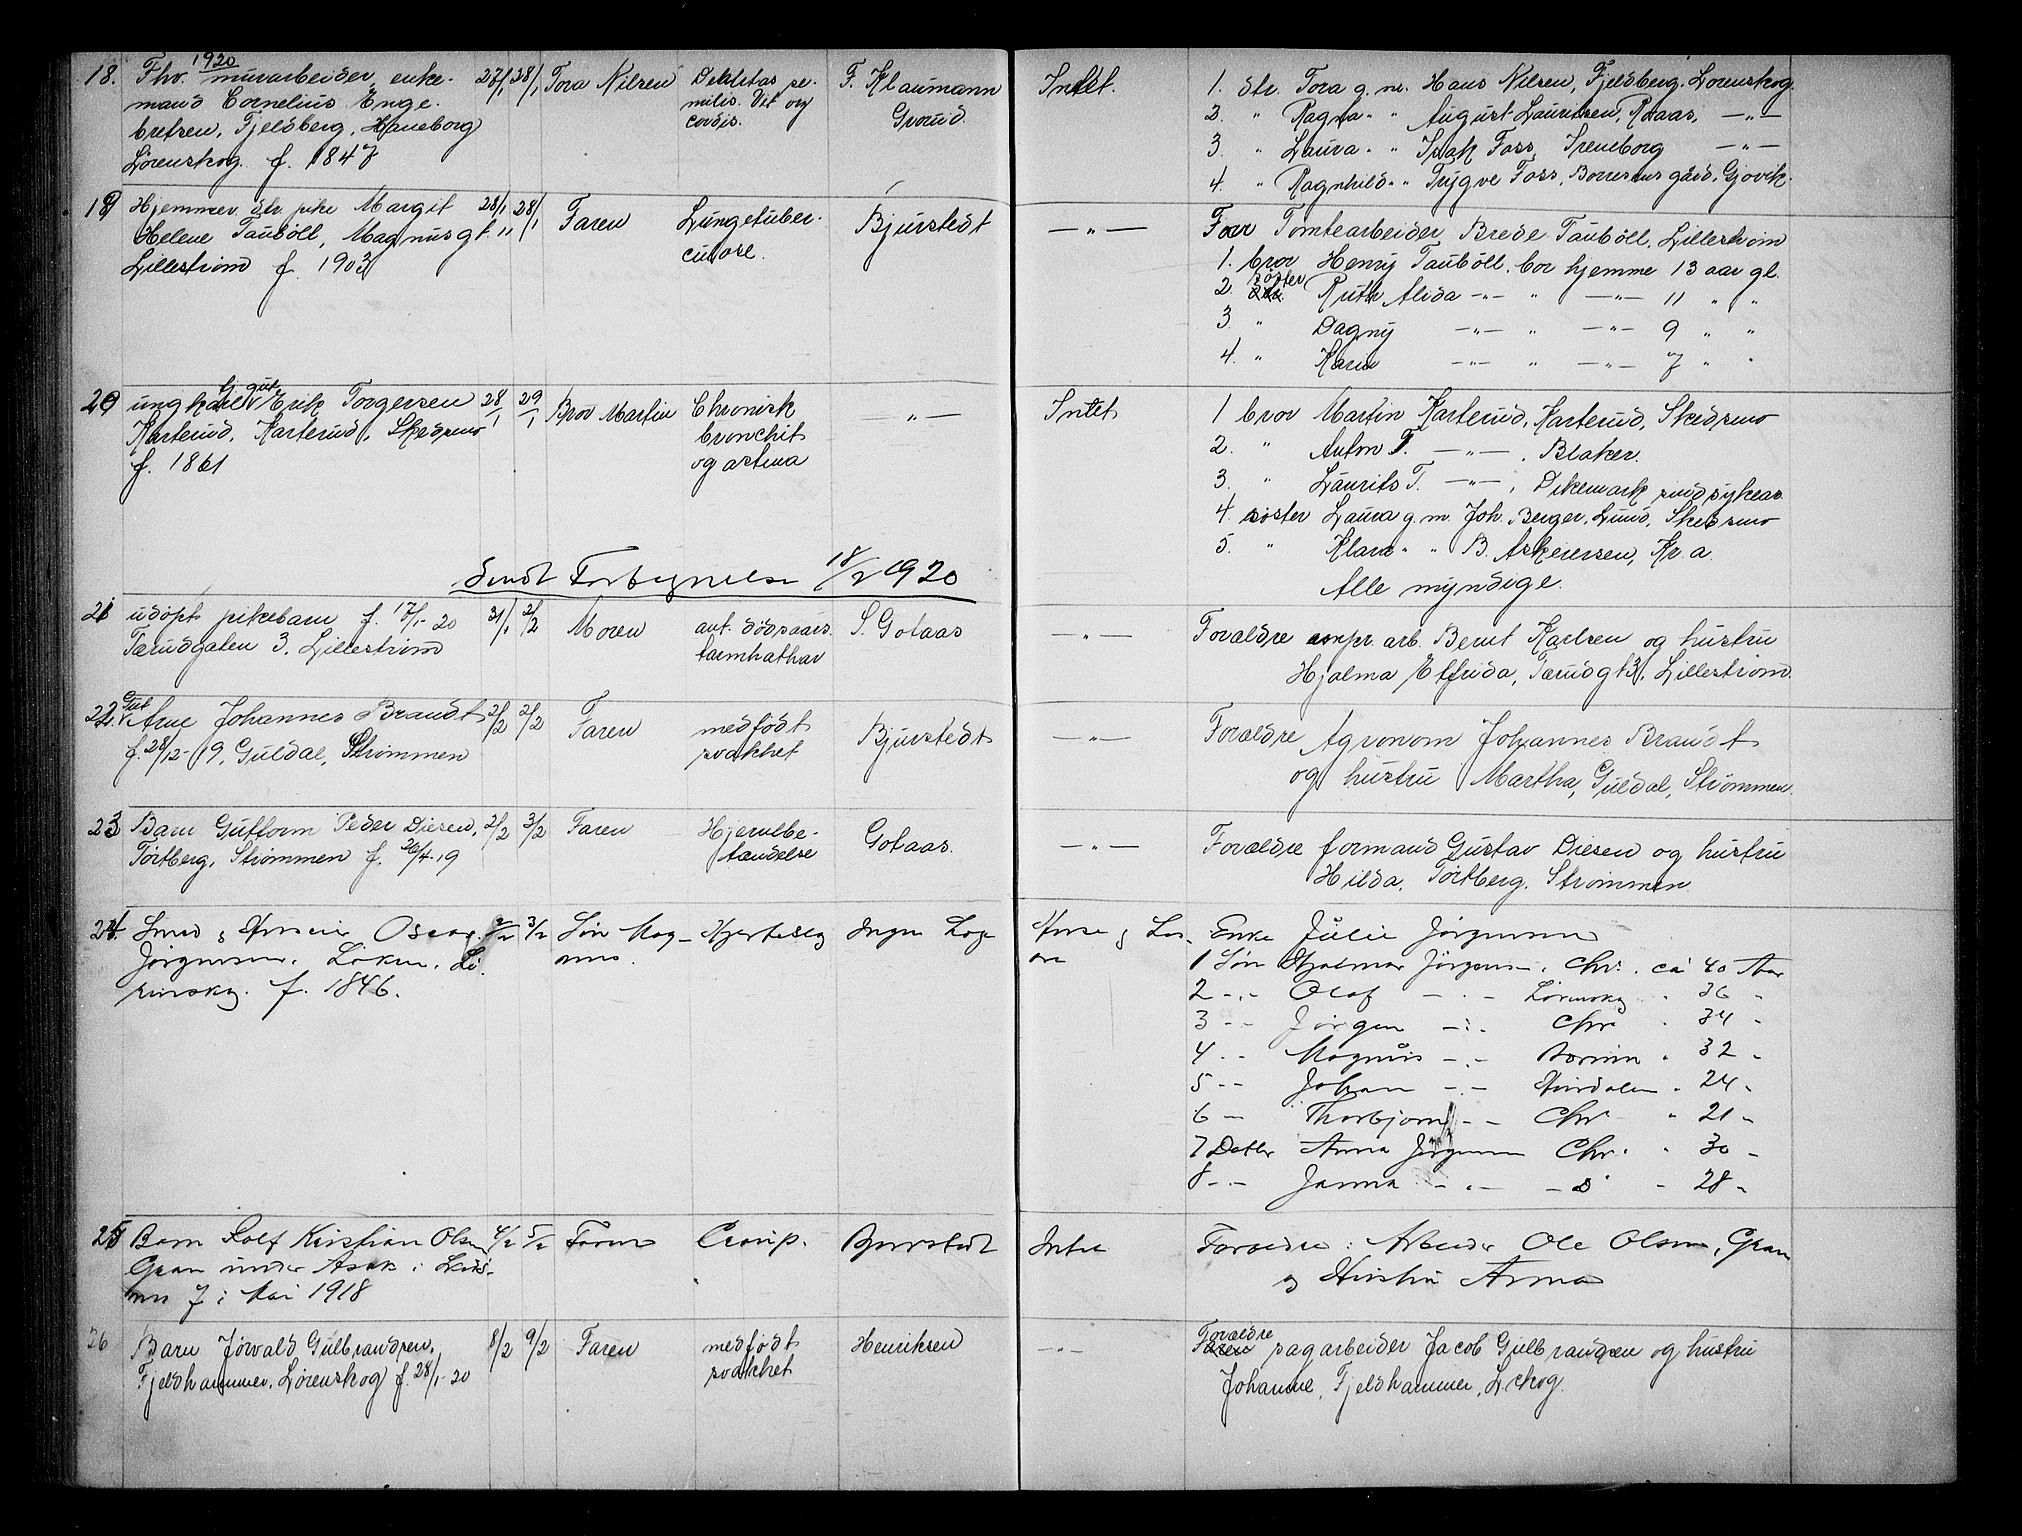 1920
18. Fhv. murarbeider, enke- 27/1 28/1 Tora Nilsen F. Klaumann Intet. 1. dtr. Tora g. m. Hans Nilsen, Fjeldberg, Lørenskog.
mand Cornelius Enge- cordis. Grorud. 2. " Ragna " " August Lauritsen, Raaas, —"—
bretsen, Fjeldberg, Haneborg 3. " Laura " " Isak Foss, —"—
Lørenskog. f. 1847 4. " Ragnhild " " Trygve Foss, gård, Gjøvik.
19 Hjemmev. dtr. pike Margit 28/1 28/1 Faren Lungetuber- Bjurstedt —"— Far Tomtearbeider Brede Taubøll, Lillestrøm
Helene Taubøll, Magnusgt. 11 culose. 1. bror Henry Taubøll, bor hjemme 13 aar gl.
Lillestrøm f. 1903 2. søster Ruth Alida —"— " —"— 11 " "
3. " Dagny —"— " —"— 9 " "
4. " Karin —"— " —"— 7 " "
20 ungkarl Erik Torgersen 28/1 29/1 Bror Martin Chronisk "— Intet 1 bror Martin Karterud, Karterud, Skedsmo
Karterud, Karterud, Skedsmo bronchit 2. " Anton T. —"— , Blaker.
f. 1861 og astma 3. " Laurits T. —"— , Dikemark sindsykeas.
4. søster Laura g. m. Joh. Berger, Lund, Skedsmo
5. " Klara " " B. Askeiersen, Kr.a.
Alle myndige.
Sendt Fortegnelse 18/2 1920
21 udøpt pikebarn f. 17/1-20 31/1 2/2 Moren ant. dødsaars. S. Gotaas —"— Forældre arb. Bernt Karlsen og hustru
Tærudgaten 3, Lillestrøm tarmkathar Hjalma Elfrida, Tærudgt. 3, Lillestrøm.
22. Gut Arne Johannes Brandt 2/2 2/2 Faren medfødt Bjurstedt —"— Forældre Agronom Johannes Brandt
f. 28/12-19, Guldal, Strømmen svakhet og hustru Martha, Guldal, Strømmen.
23 Barn Guttorm Peder Diesen, 2/2 3/2 Faren Hjernebe- Gotaas. —"— Forældre formand Gustav Diesen og hustru
Tortberg, Strømmen f. 26/4-19 tændelse Hilda, Tortberg, Strømmen.
24. Smed Oscar 2/2 3/2 Søn Mag- Hjerteslag Ingen Læge Enke Julie Jørgensen
Jørgensen, Løken, Lø- nus. 1 Søn Hjalmar Jørgens—, Chr. ca 40 Aar
renskog. f. 1846. 2 —"— Olaf —"— Lørenskog " 36 "
3 —"— Jørgen —"— Chr " 34 "
4 —"— Magnus —"— " 32 "
5 —"— Johan —"— " 24 "
6 — Thorbjørn —"— Chr " 21 "
7 Datter Anna Jørgensen Chr. " 30 "
8 —"— Janna —"— — " 28 "
25 Barn Rolf Kristian Olsen 4/2 5/2 Faren Croup. Bjurstedt Intet Forældre: Arbeider Ole Olsen, Gran
Gran under Asak i Skeds- og Hustru Anna
mo f i Mai 1918
26 Barn Jørvald Gulbrandsen, 8/2 9/2 Faren medfødt Henriksen —"— Forældre sagarbeider Jacob Gulbrandsen og hustru
Fjeldhammer, Lørenskog f. 28/1-20 svakhet Johanne, Fjeldhammer, L.skog.